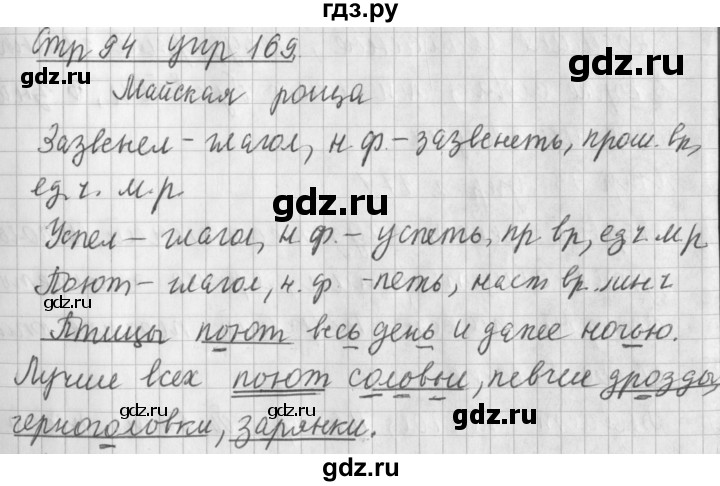 гдз.ру
Стр 94 упр 169
Майская роща
Зазвенел - глагол, н.ф. - зазвенеть, прош. вр,
ед.ч. м.р
Успел - глагол, н.ф. - успеть, пр вр, ед ч м.р
Поют - глагол, н.ф - петь, наст вр. мн.ч
Птицы поют весь день и даже ночью.
Лучше всех поют соловьи, певчие дрозды,
черноголовки, зарянки.
gdz.ru
gdz.ru
gdz.ru
gdz.ru
gdz.ru
gdz.ru
gdz.ru
gdz.ru
gdz.ru
gdz.ru
gdz.ru
gdz.ru